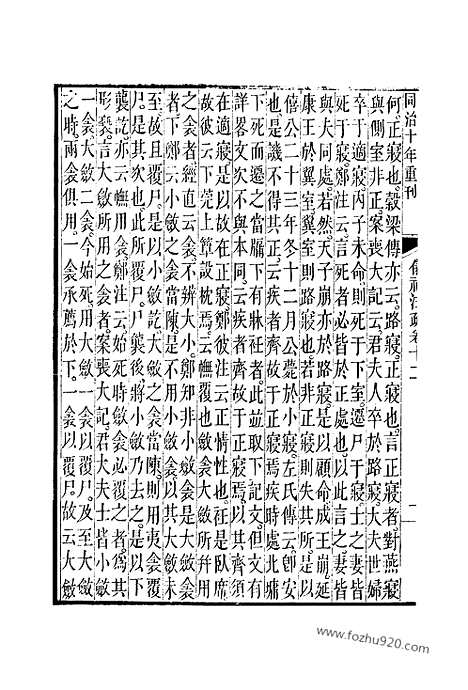 同治十年重刊
儀禮注疏卷十二
二
何。正寢也。穀梁傳亦云。路寢。正寢也。言正寢者。對燕寢
與側室非正。案喪大記云。君夫人卒於路寢。大夫世婦
卒于適寢。內子未命。則死于下室。遷尸于寢。士之妻皆
死于寢。鄭注云。言死者必皆於正處也。以此言之。妻皆
與夫同處。若然。天子崩亦於路寢。是以顧命成王崩。延
康王於翼室。翼室則路寢也。若非正寢。則失其所。是以
僖公二十三年冬十二月。公薨於小寢。左氏傳云。卽安
也。是譏不得其正。云疾者齊故于正寢焉。疾時處北墉
下。死而遷之當牖下。有牀衽者。此並取下記文。但文有
詳畧。文次不與本同。云疾者齊。故于正寢焉。以其齊須
在適寢。是以故在正寢。鄭彼注云。正情性也。衽是臥席。
故彼云下莞上簟設枕焉。云幠覆也。斂衾大斂所幷用
之衾者。經直云衾。不辨大小。鄭知非小斂衾是大斂衾
者。下鄭云小斂之衾當陳。是不用小斂衾。以其大斂未
至。故且覆尸。是以小斂訖。大斂之衾當陳。則用夷衾覆
尸。是其次也。此所覆尸。尸襲後。將小斂乃去之。是以下
襲訖亦云幠用衾。鄭注云。始死時斂衾必覆之者。爲其
形褻。言大斂所用之衾者。案喪大記。君大夫士皆小斂
一衾。大斂二衾。今始死。用大斂一衾以覆尸。及至大斂
之時。兩衾俱用。一衾承薦於下。一衾以覆尸。故云大斂
www.fozhu920.com